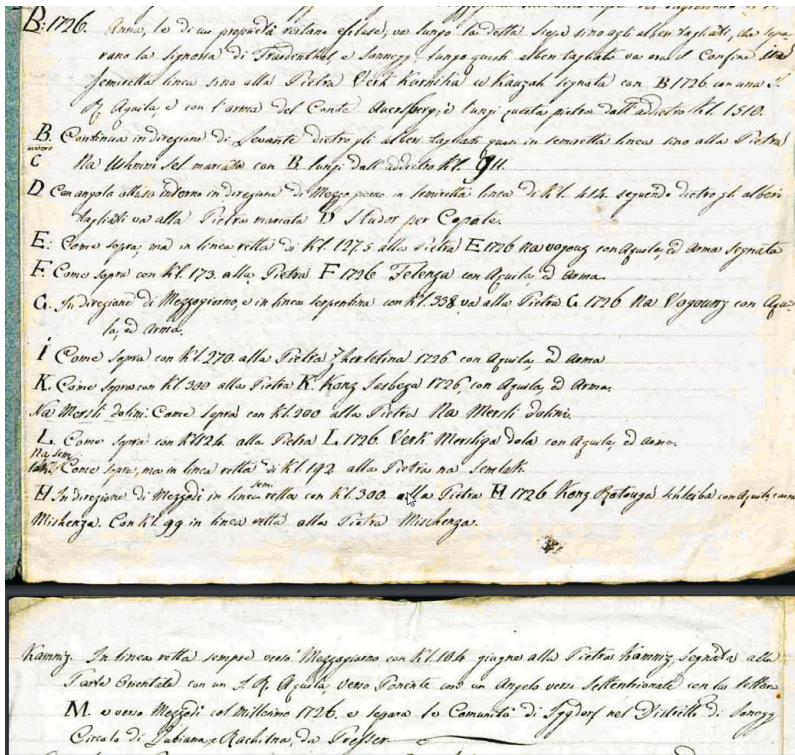 B: 1726. Anna, le di cui proprietà restano escluse, va lungo la detta siepe sino agli alberi tagliati, che sepa-
rano la Signoria di Fraidenthal, e Sonnegg, lungo questi alberi tagliati va ora il Confine in
semiretta linea sino alla Pietra Verk Kurnika ec Kauzah segnata con B 1726 con una I.
R. Aquila e con l'arma del Conte Auersperg, è lungi questa pietra dall'addietro Kl. 1510.
B. Continua in direzione di Levante dietro gli alberi tagliati quasi in semiretta linea sino alla Pietra
ovvero
C Na Ushnim Sel marcata con B. lungi dall'addietro Kl. 911.
D Con angolo ottuso interno in direzione di Mezzogiorno in semiretta linea di Kl. 414. seguendo dietro gli alberi
tagliati va alla Pietra marcata D Studor per Copate.
E: Come sopra, ma in linea retta di Kl. 127.5 alla Pietra E. 1726 Na vogouz con Aquila, ed Arma segnata
F. Come sopra con Kl. 173. alla Pietra F 1726 Telenza con Aquila, ed arma.
G. In direzione di Mezzogiorno, e in linea serpentina con Kl. 338 va alla Pietra G 1726 Na Vogounz con Aqui-
la, ed arma.
I Come sopra con Kl. 270. alla Pietra 1726 con Aquila, ed arma
K. Come sopra con Kl 300 alla Pietra K. Konz Sasbega 1726, con Aquila, ed Arma.
Na Mersli dolini. Come sopra con Kl. 200 alla Pietra Na Mersli dolini.
L. Come sopra con Kl 124. alla Pietra L. 1726 Verk Mersliga dola con Aquila, ed arma.
Na sem
lak. Come sopra, ma in linea retta di Kl 192 alla Pietra na Semlak.
H. In direzione di Mezzodì in linea semiretta con Kl. 300. alla Pietra H 1726 Konz con Aquila, e arma
Mishenza. Con Kl. 99 in linea retta alla Pietra Mischenza.
Kamniz. In linea retta sempre verso Mezzogiorno con Kl. 104 giugne alla Pietra Kamniz, segnata alla
Parte Orientale con un I. R. Aquila, verso Ponente con un Angelo verso Settentrionale con la lettera
M. e verso Mezzodì col millesimo 1726. e separa le Comunità di Iggdorf nel Distretto di Sonegg
Circolo di Lubiana, e Rachitna, da Presser